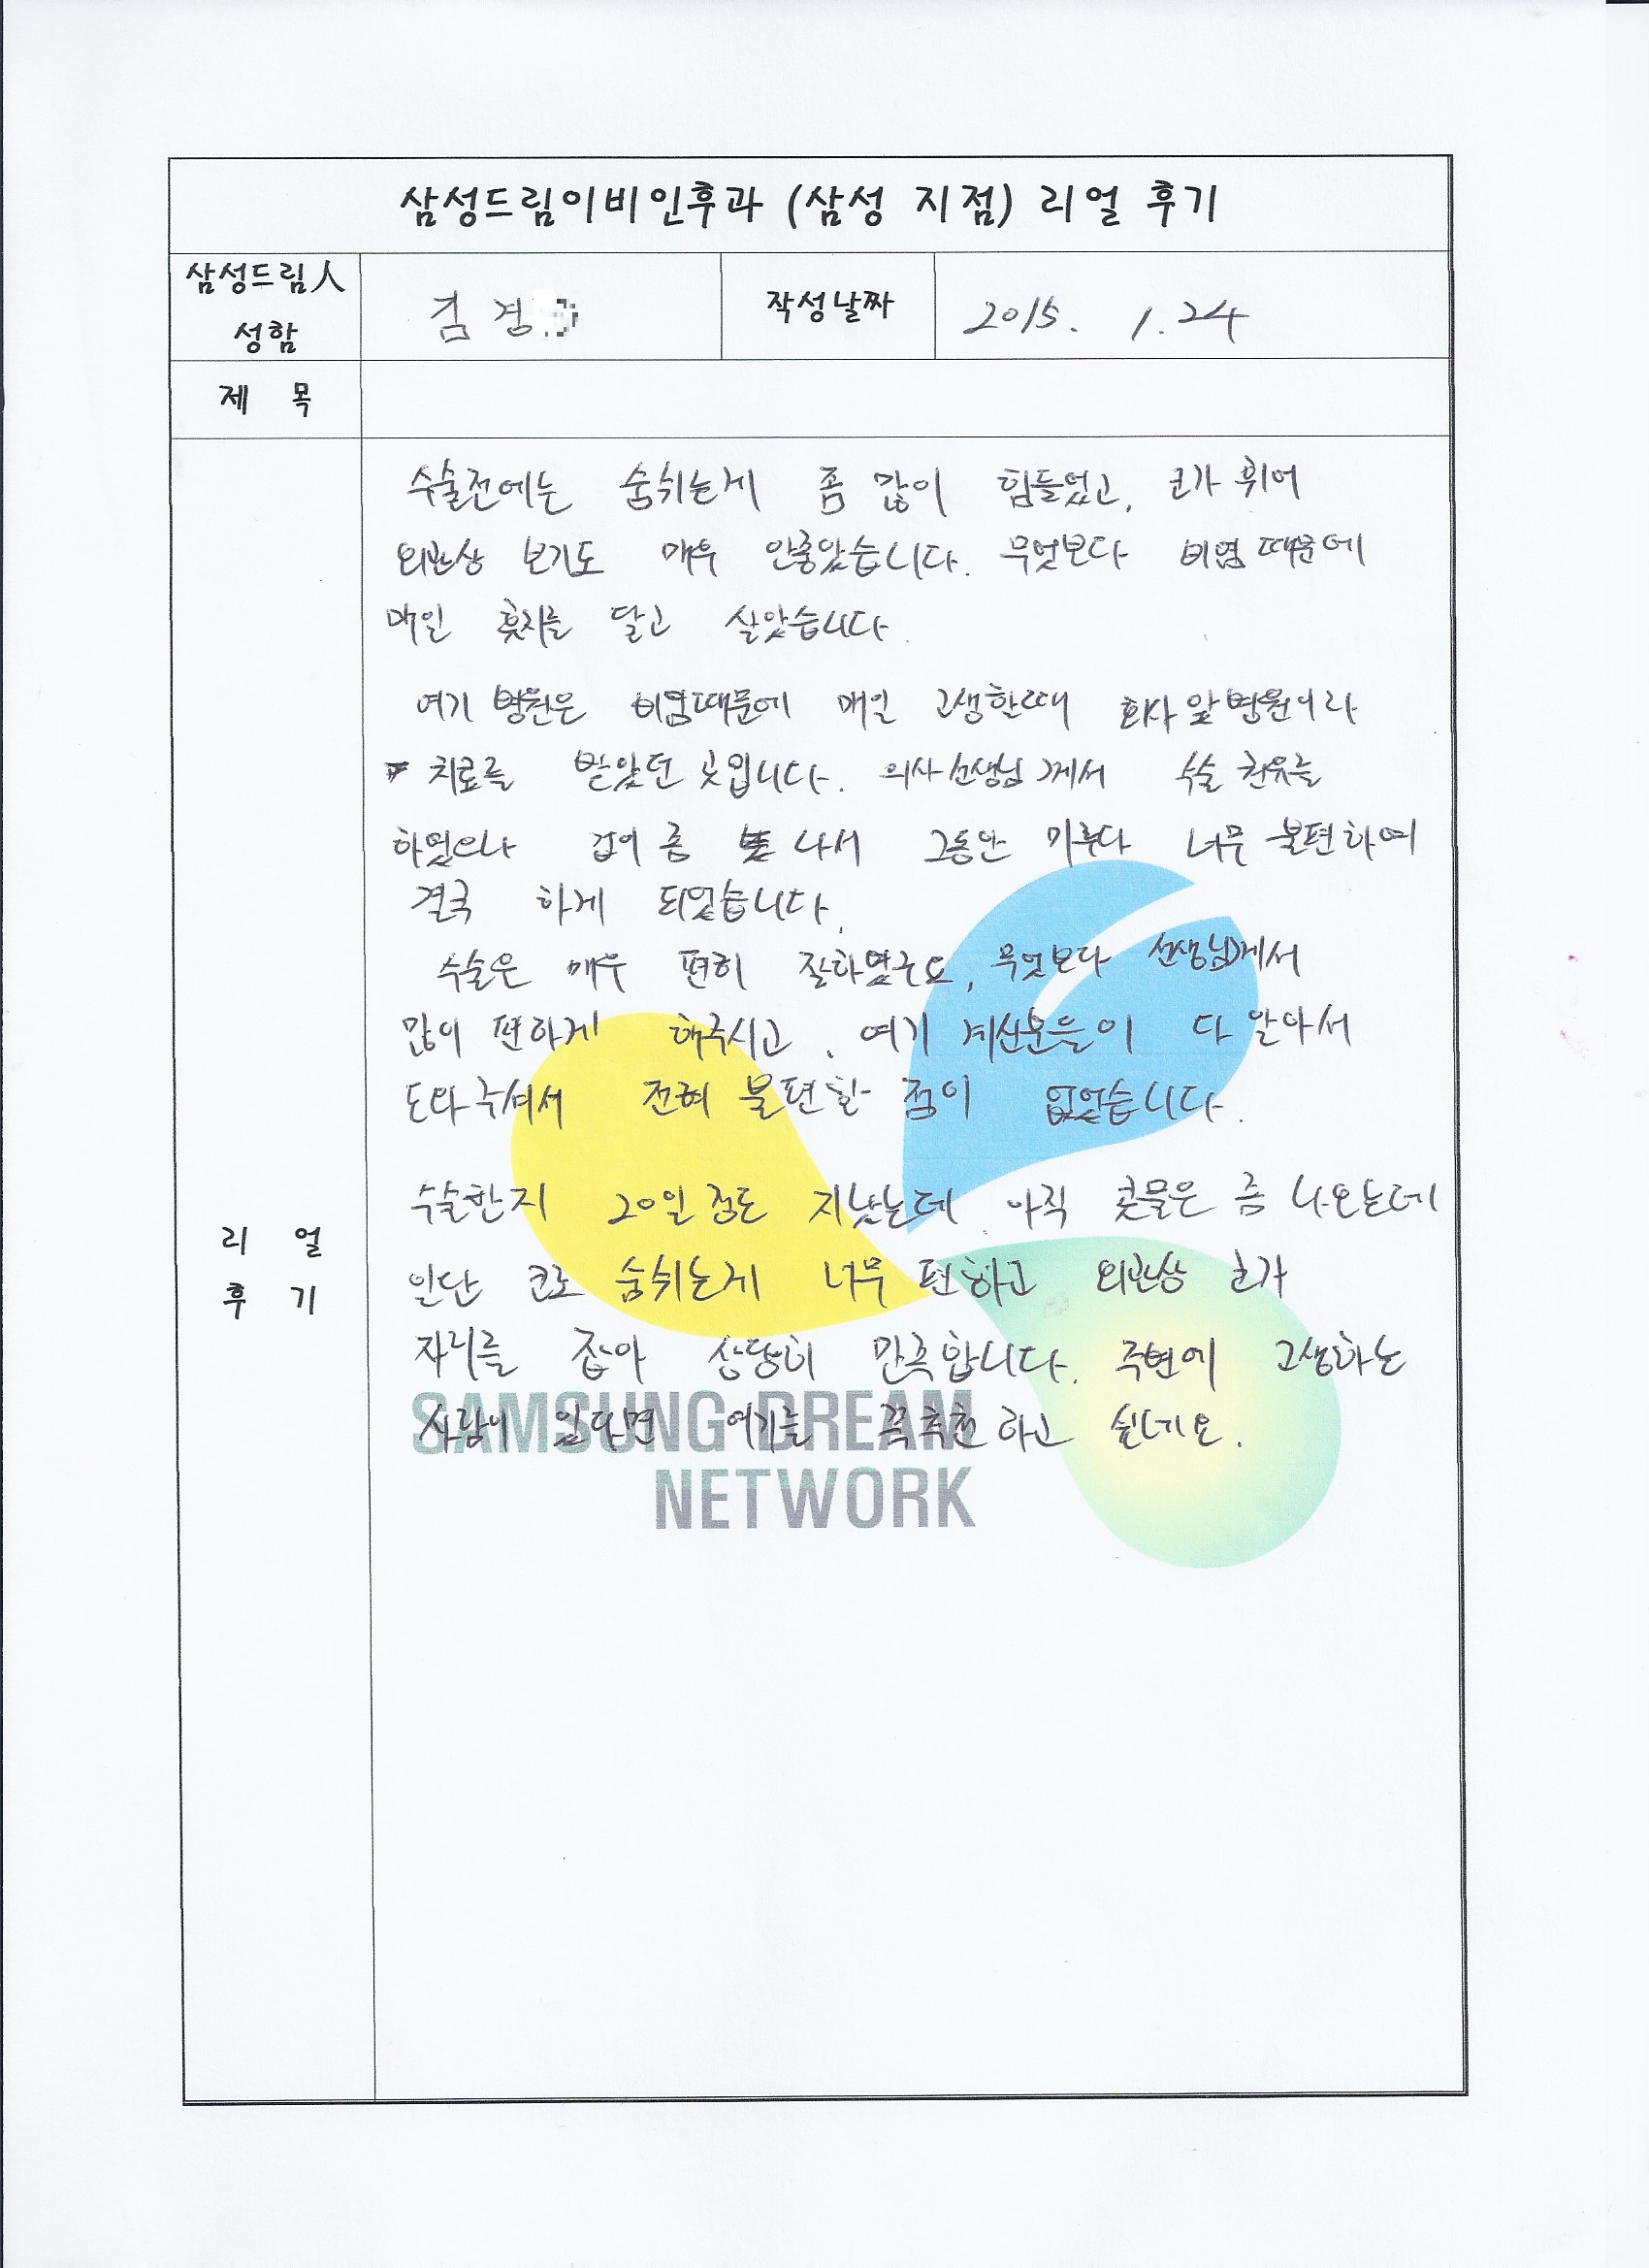 삼성드림이비인후과 (삼성 지점) 리얼 후기
삼성드림人
성함
김경
작성날짜
2015. 1.24
제 목
수술전에는 숨쉬는게 좀 많이 힘들었고, 코가 휘어
외관상 보기도 매우 안좋았습니다. 무엇보다 비염때문에
매일 휴지를 달고 살았습니다.
여기 병원은 비염때문에 매일 고생할때 회사 앞 병원이라
치료를 받았던 곳입니다. 의사선생님께서 수술 권유를
하였으나 겁이 좀 나서 그동안 미루다 너무 불편하여
결국 하게 되었습니다.
수술은 매우 편히 잘하였구요, 무엇보다 선생님께서
많이 편하게 해주시고, 여기 계신분들이 다 알아서
도와주셔서 전혀 불편할 점이 없었습니다.
수술한지 20일 정도 지났는데 아직 콧물은 좀 나오는데
일단 코로 숨쉬는게 너무 편하고 외관상 코가
자리를 잡아 상당히 만족합니다. 주변에 고생하는
사람이 있다면 여기를 꼭 추천 하고 싶네요.
리 얼
후 기
SAMSUNG DREAM
NETWORK